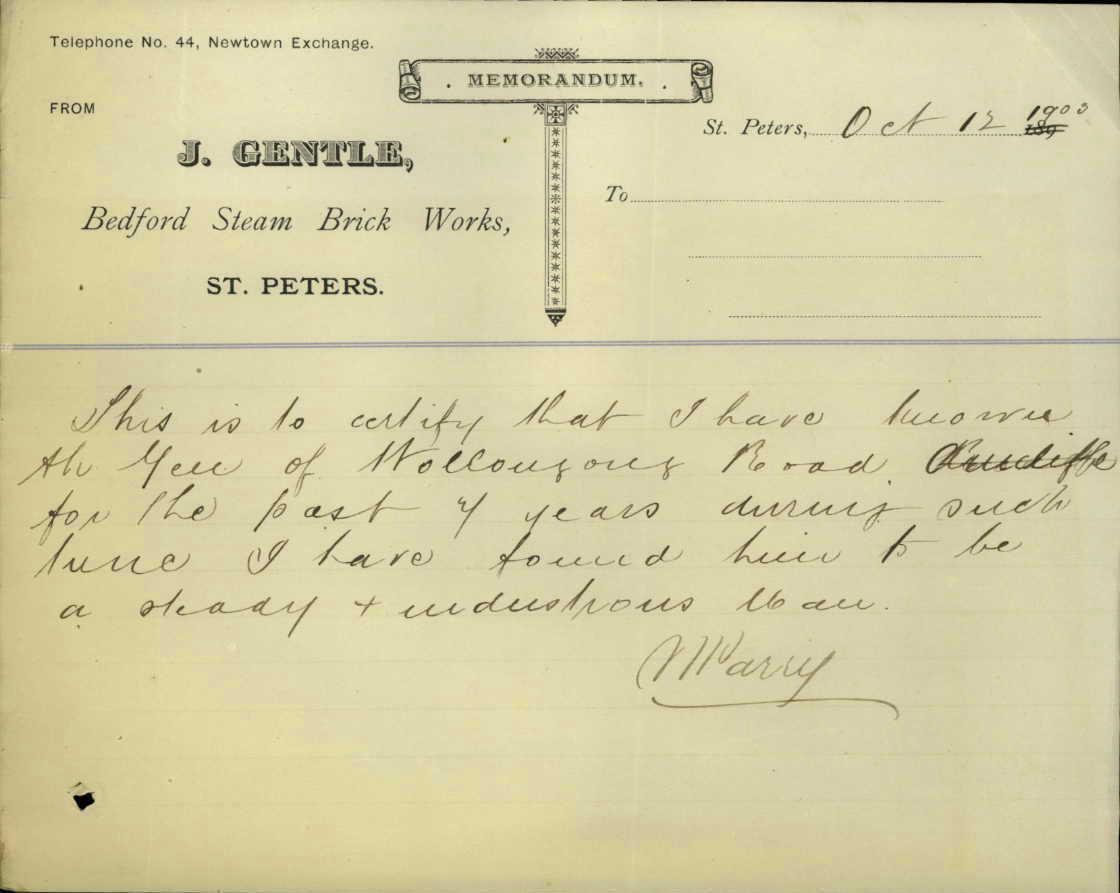 Telephone No. 44, Newtown Exchange.
MEMORANDUM.
FROM
St. Peters, Oct 12 1903
J. GENTLE,
To
Bedford Steam Brick Works,
ST. PETERS.
This is to certify that I have known
Ah Yen of Wollongong Road
for the past 7 years during such
time I have found him to be
a steady + industrous Man.